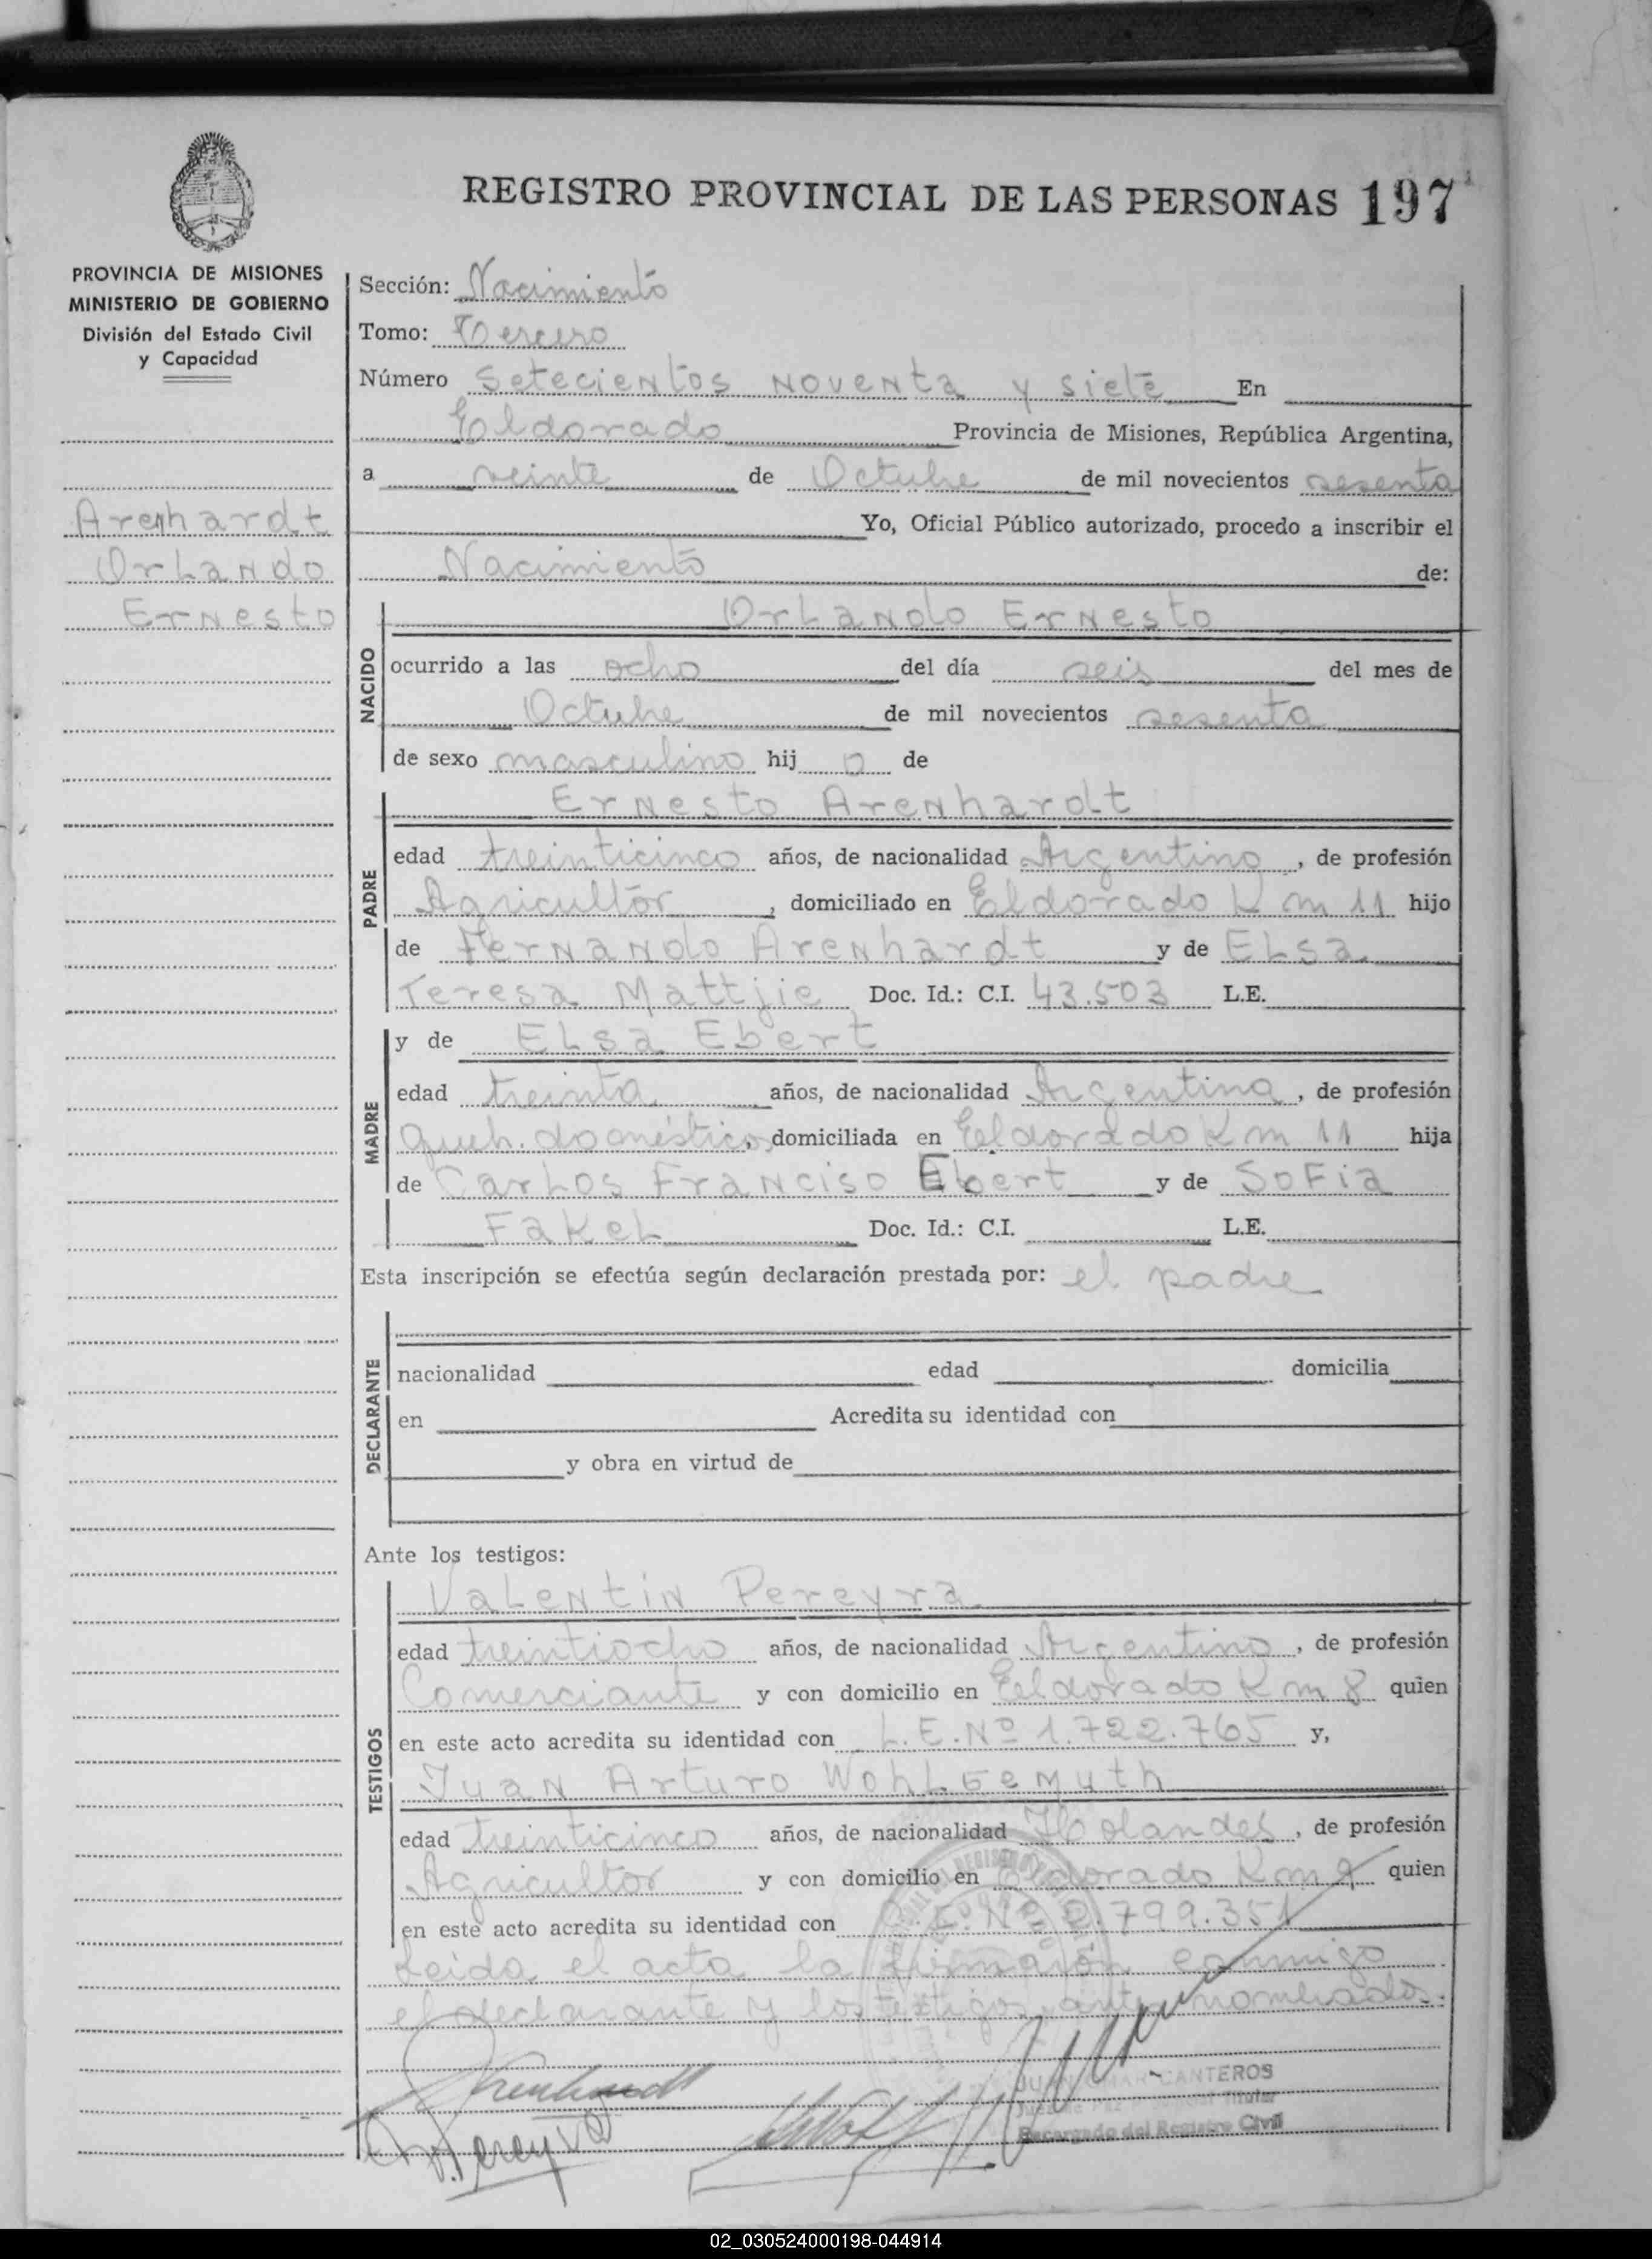 REGISTRO PROVINCIAL DE LAS PERSONAS 197
PROVINCIA DE MISIONES
MINISTERIO DE GOBIERNO
División del Estado Civil
y Capacidad
Arenhardt
Orlando
Ernesto
Sección: Nacimiento
Tomo: Tercero
Número setecientos noventa y siete En
Eldorado Provincia de Misiones, República Argentina,
a veinte de Octubre de mil novecientos sesenta
Yo, Oficial Público autorizado, procedo a inscribir el
Nacimiento de:
NACIDO
Orlando Ernesto
ocurrido a las ocho del día seis del mes de
Octubre de mil novecientos sesenta
de sexo masculino hij o de
PADRE
Ernesto Arenhardt
edad treinticinco años, de nacionalidad Argentino, de profesión
Agricultor, domiciliado en Eldorado Km 11 hijo
de Fernando Arenhardt y de Elsa
Teresa Mattjie Doc. Id.: C.I. 43.503 L.E.
MADRE
y de Elsa Ebert
edad treinta años, de nacionalidad Argentina, de profesión
queh. domésticos, domiciliada en Eldorado Km 11 hija
de Carlos Franciso Ebert y de Sofia
Fakel Doc. Id.: C.I. L.E.
Esta inscripción se efectúa según declaración prestada por: el padre
DECLARANTE
nacionalidad edad domicilia
en Acredita su identidad con
y obra en virtud de
Ante los testigos:
TESTIGOS
Valentin Pereyra
edad treintiocho años, de nacionalidad Argentino, de profesión
Comerciante y con domicilio en Eldorado Km 8 quien
en este acto acredita su identidad con L.E. Nº 1.722.765 y,
Juan Arturo Wohlgemuth
edad treinticinco años, de nacionalidad Holandes, de profesión
Agricultor y con domicilio en Eldorado Km 9 quien
en este acto acredita su identidad con Nº 2.799.351
Leida el acta la firmarón conmigo
el declarante y los testigos antes nombrados.
Arenhardt
V. Pereyra
CANTEROS
Titular
Encargado del Registro Civil
02_030524000198-044914